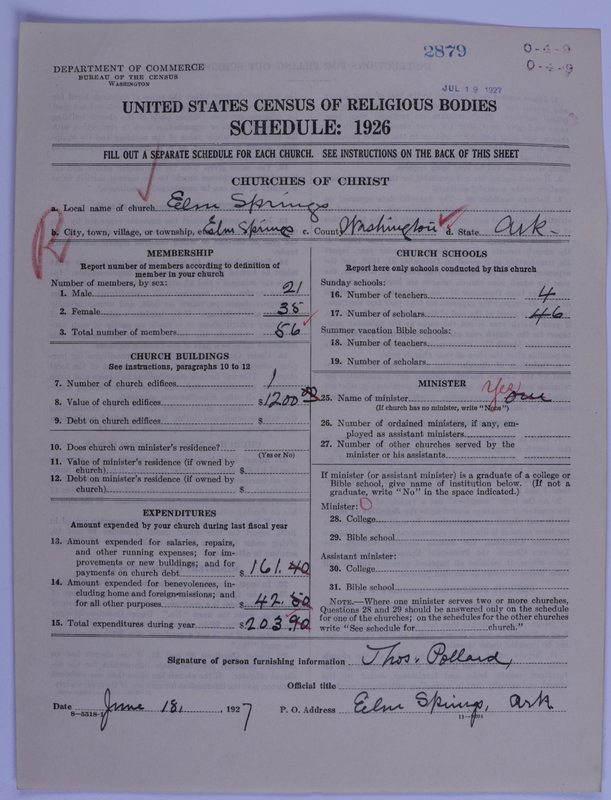 2879
0-4-9
0-4-9
DEPARTMENT OF COMMERCE
BUREAU OF THE CENSUS
WASHINGTON
JUL 19 1927
UNITED STATES CENSUS OF RELIGIOUS BODIES
SCHEDULE: 1926
FILL OUT A SEPARATE SCHEDULE FOR EACH CHURCH. SEE INSTRUCTIONS ON THE BACK OF THIS SHEET
CHURCHES OF CHRIST
a. Local name of church Elm Springs
R
b. City, town, village, or township, etc. Elm Springs c. County Washington d. State Ark-
MEMBERSHIP
Report number of members according to definition of
member in your church
Number of members, by sex:
1. Male 21
2. Female 35
3. Total number of members 56
CHURCH BUILDINGS
See instructions, paragraphs 10 to 12
7. Number of church edifices 1
8. Value of church edifices $1200 00
9. Debt on church edifices $
10. Does church own minister's residence?
(Yes or No)
11. Value of minister's residence (if owned by
church) $
12. Debt on minister's residence (if owned by
church) $
EXPENDITURES
Amount expended by your church during last fiscal year
13. Amount expended for salaries, repairs,
and other running expenses; for im-
provements or new buildings; and for
payments on church debt $161.40
14. Amount expended for benevolences, in-
cluding home and foreign missions; and
for all other purposes $42.50
15. Total expenditures during year $203.90
CHURCH SCHOOLS
Report here only schools conducted by this church
Sunday schools:
16. Number of teachers 4
17. Number of scholars 46
Summer vacation Bible schools:
18. Number of teachers
19. Number of scholars
MINISTER
Yes
25. Name of minister one
(If church has no minister, write "None")
26. Number of ordained ministers, if any, em-
ployed as assistant ministers
27. Number of other churches served by the
minister or his assistants
If minister (or assistant minister) is a graduate of a college or
Bible school, give name of institution below. (If not a
graduate, write "No" in the space indicated.)
Minister: 0
28. College
29. Bible school
Assistant minister:
30. College
31. Bible school
NOTE.—Where one minister serves two or more churches,
Questions 28 and 29 should be answered only on the schedule
for one of the churches; on the schedules for the other churches
write "See schedule for church."
Signature of person furnishing information Thos. Pollard
Official title
Date June 18, 1927 P. O. Address Elm Springs, Ark
8-5518-1